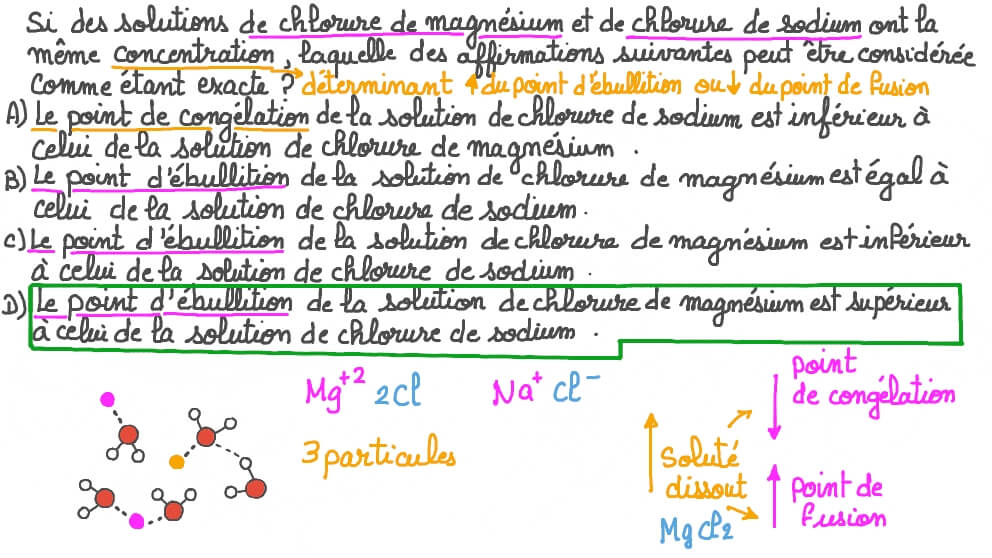 Si des solutions de chlorure de magnésium et de chlorure de sodium ont la
même concentration, laquelle des affirmations suivantes peut être considérée
comme étant exacte ? déterminant ↑ du point d'ébullition ou ↓ du point de fusion
A) Le point de congélation de la solution de chlorure de sodium est inférieur à
celui de la solution de chlorure de magnésium .
B) Le point d'ébullition de la solution de chlorure de magnésium est égal à
celui de la solution de chlorure de sodium .
c) Le point d'ébullition de la solution de chlorure de magnésium est inférieur
à celui de la solution de chlorure de sodium .
D) Le point d'ébullition de la solution de chlorure de magnésium est supérieur
à celui de la solution de chlorure de sodium .
Mg⁺² 2Cl Na⁺ Cl⁻
3 particules
Soluté
dissout
MgCl₂
point
de congélation
point de
fusion